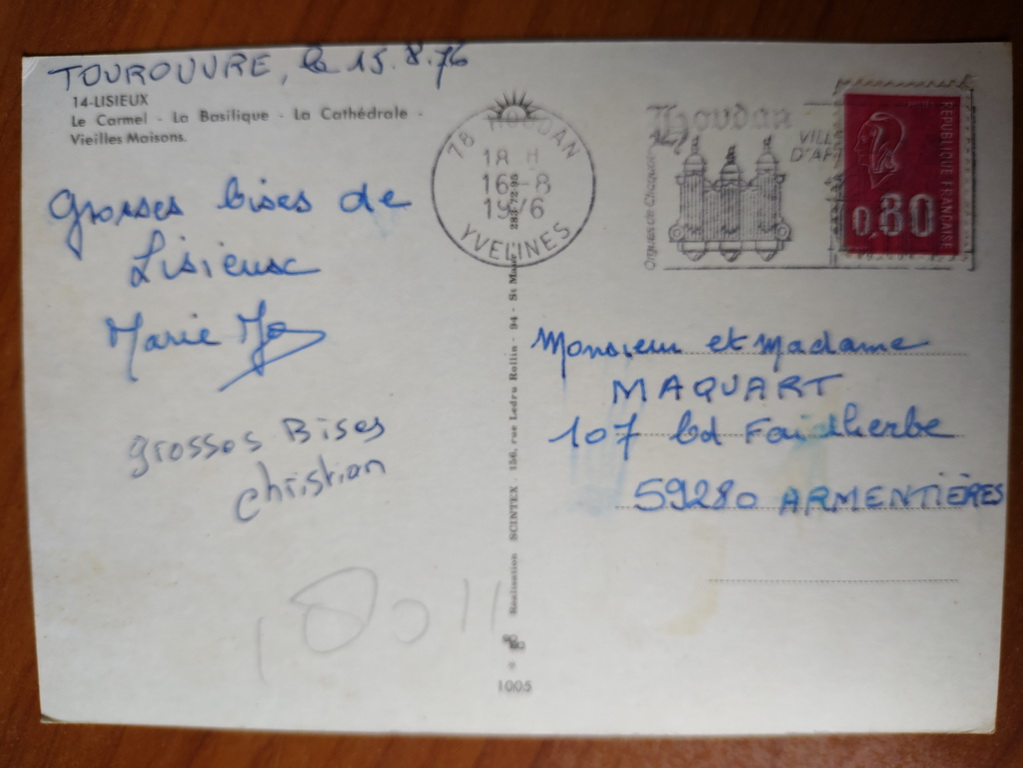 TOUROUVRE, le 15.8.76
14-LISIEUX
Le Carmel - La Basilique - La Cathédrale -
Vieilles Maisons.
Grosses bises de
Lisieux
Marie Jo
grosses Bises
christian
78 HOUDAN
18 H
16-8
1976
YVELINES
Houdan
VILL
D'AR
Orgues de Clicquot
REPUBLIQUE FRANÇAISE
0,80
Réalisation SCINTEX. 156, rue Ledru Rollin - 94 - St Maur 283-72-95
1005
Monsieur et Madame
MAQUART
107 bd Faidherbe
59280 ARMENTIÈRES